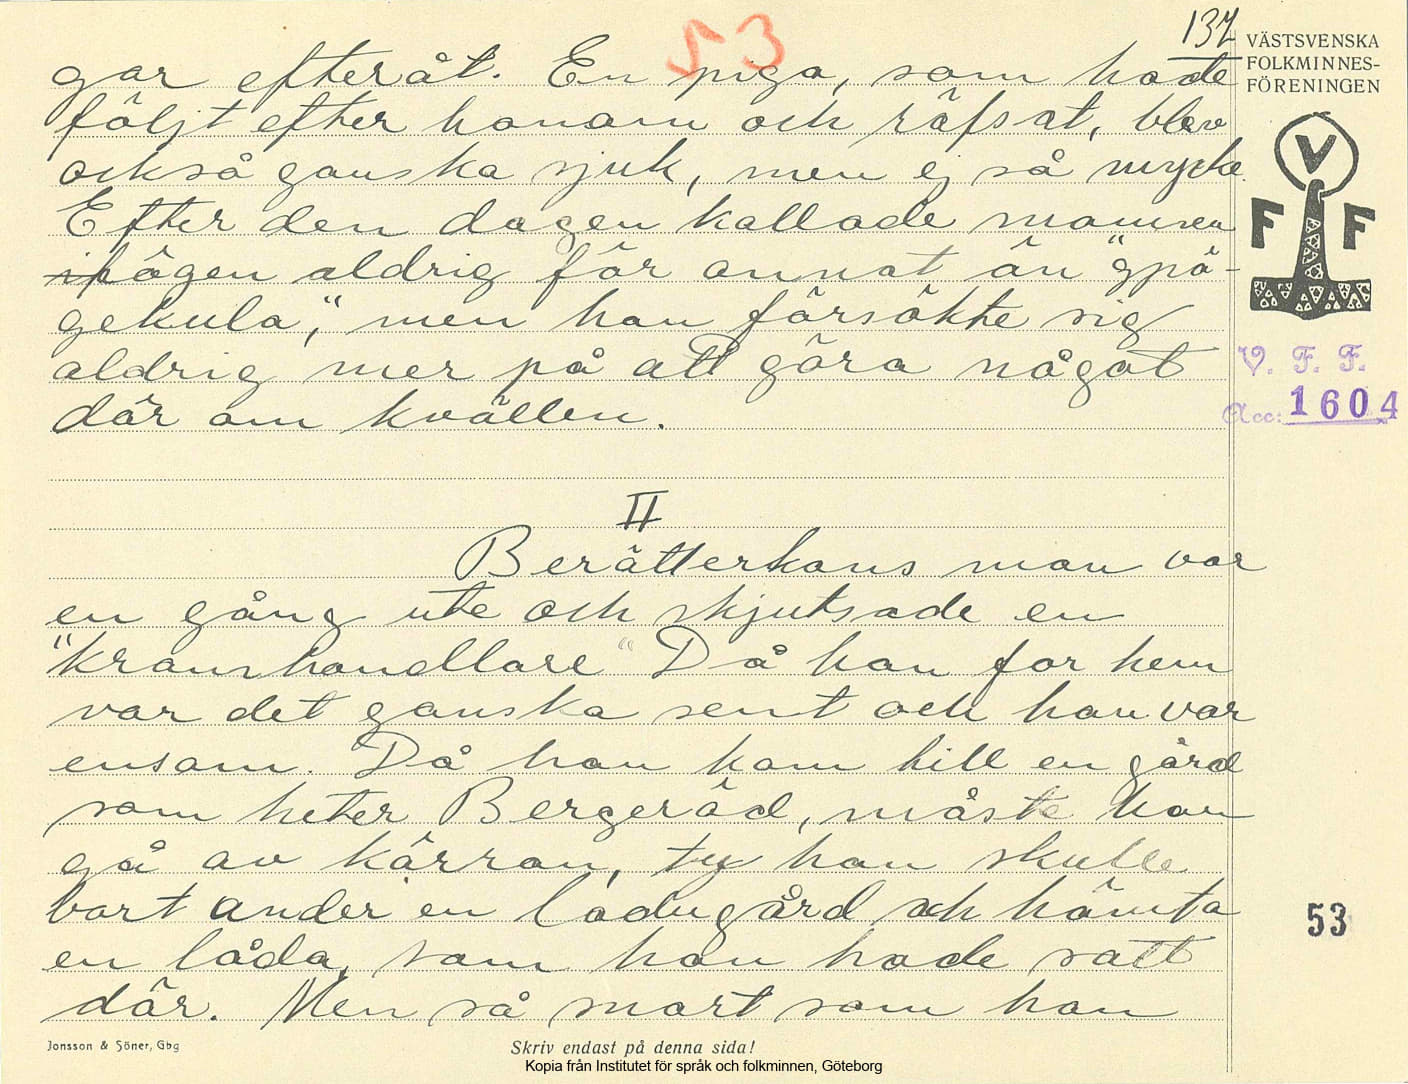 53
137
VÄSTSVENSKA
FOLKMINNES-
FÖRENINGEN
V
F F
V. F. F.
Acc: 1604
gar efteråt. En piga, som hade
följt efter honom och räfsat, blev
också ganska sjuk, men ej så mycke.
Efter den dagen kallade mannen
högen aldrig för annat än "spö-
gekula," men han försökte sig
aldrig mer på att göra något
där om kvällen.
II
Berätterkans man var
en gång ute och skjutsade en
"kramhandlare" Då han for hem
var det ganska sent och han var
ensam. Då han kom till en gård
som heter Bergeröd, måste han
gå av kärran, ty han skulle
bort under en ladugård och hämta
en låda, som han hade satt
där. Men så snart som han
53
Jonsson & Söner, Gbg
Skriv endast på denna sida!
Kopia från Institutet för språk och folkminnen, Göteborg